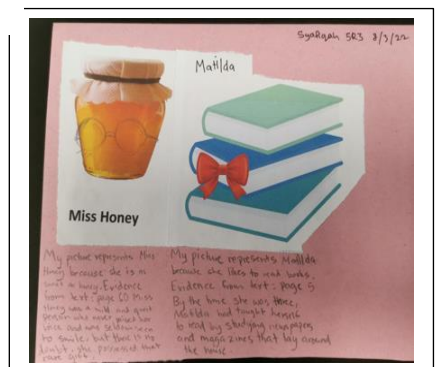 Syafiqah 5R3 8/3/22
Matilda
Miss Honey
My picture represents Miss
Honey because she is as
sweet as honey. Evidence
from text: page 60 Miss
Honey was a mild and quiet
person who never raised her
voice and was seldom seen
to smile, but there is no
doubt she possessed that
rare gift
My picture represents Matilda
because she likes to read books.
Evidence from text: page 5
By the time she was three,
Matilda had taught herself
to read by studying newspapers
and magazines that lay around
the house.